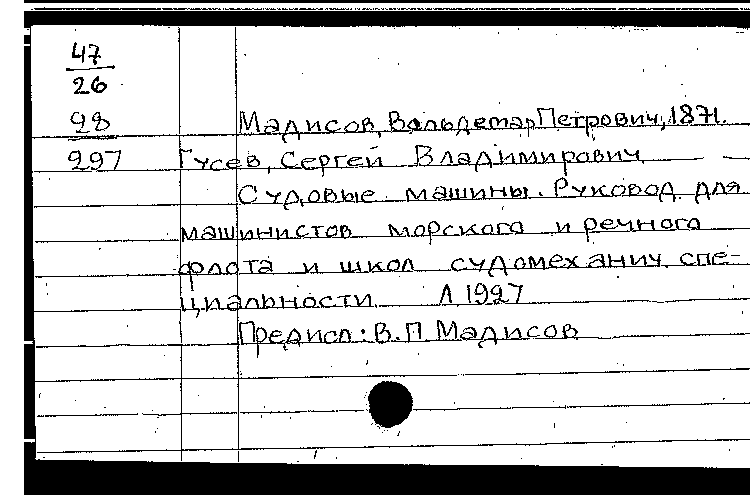 47
26
98
Мадисов, Вольдемар Петрович, 1871.
297
Гусев, Сергей Владимирович
Судовые машины. Руковод. для
машинистов морского и речного
флота и школ судомеханич. спе-
циальности Л 1927
Предисл: В. П. Мадисов